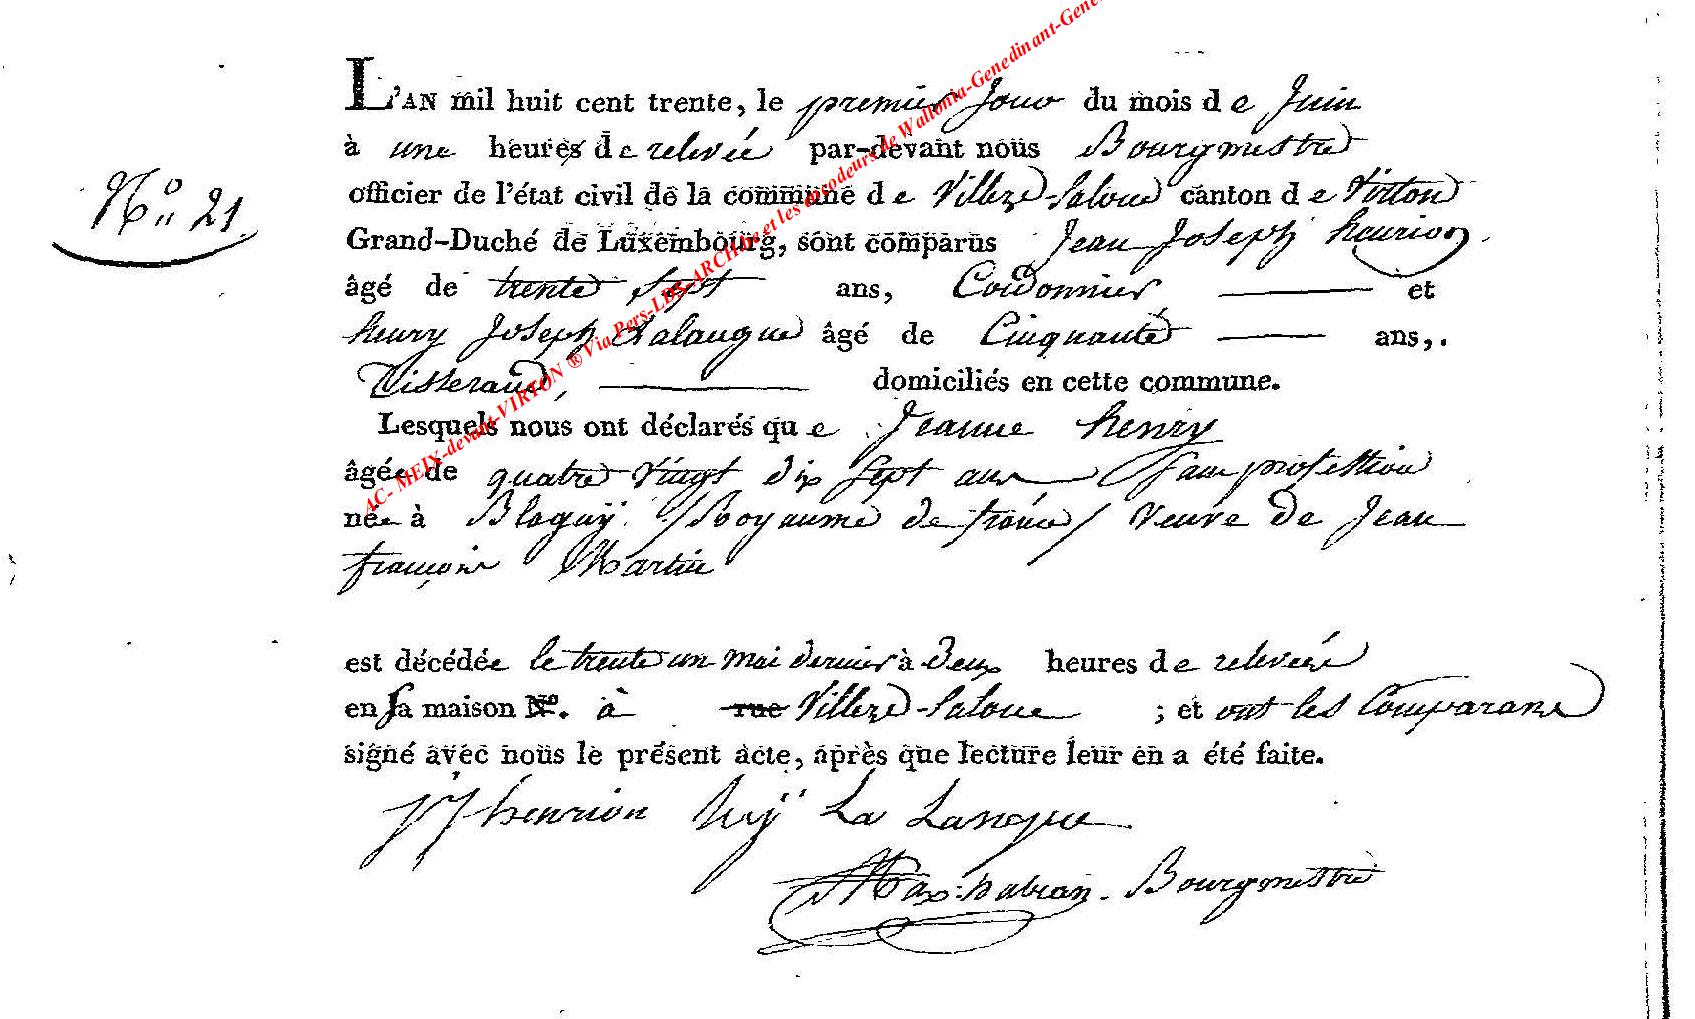 L'AN mil huit cent trente, le premier jour du mois de Juin
à une heures de relevée par-devant nous Bourgmestre
officier de l'état civil de la commune de Villers-Laloue canton de Virton
N° 21
Grand-Duché de Luxembourg, sont comparus Jean Joseph henrion
âgé de trente Sept ans, Cordonnier et
henry Joseph Lalangue âgé de Cinquante ans,.
Tisserand, domiciliés en cette commune.
Lesquels nous ont déclarés que Jeanne henry
âgée de quatre vingt dix Sept ans Sans profession
née à Blagny /Royaume de france/ veuve de Jean
françois Martin
est décédée le trente un mai dernier à deux heures de relevée
en Sa maison N°. à rue Villers-Laloue ; et ont les Comparans
signé avec nous le présent acte, après que lecture leur en a été faite.
JJ henrion hrÿ La Langue
Bourgmestre
AC- MEIX-devant-VIRTON ® Via Pers-LDS-ARCHive et les encodeurs de Wallonia-Genedinant-Gene